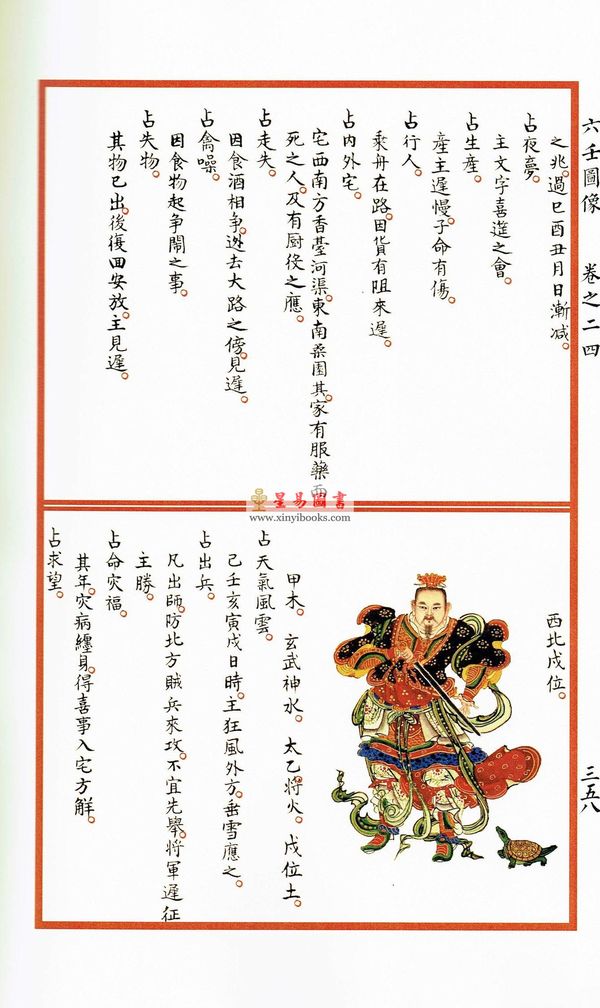 六壬圖像　卷之二四
三五八
之兆。過巳酉丑月日漸减。
占夜夢。
主文字喜進之會。
占生産。
産主遲慢。子命有傷。
占行人。
乘舟在路。因貨有阻來遲。
占内外宅。
宅西南方香臺河渠。東南桑園。其家有服藥
死之人。及有厨役之應。
占走失。
因食酒相争。迯去大路之傍。見遲。
占禽噪。
因食物起爭鬧之事。
占失物。
其物已出。後復回安放。主見遲。
星易圖書
www.xinyibooks.com
西北戌位。
甲木。玄武神水。太乙將火。戌位土。
占天氣風雲。
己壬亥寅戌日時。主狂風外方。垂雪應之。
占出兵。
凡出師。防北方賊兵來攻。不宜先舉。將軍遲征
主勝。
占命灾福。
其年灾病纏身。得喜事入宅方解。
占求望。